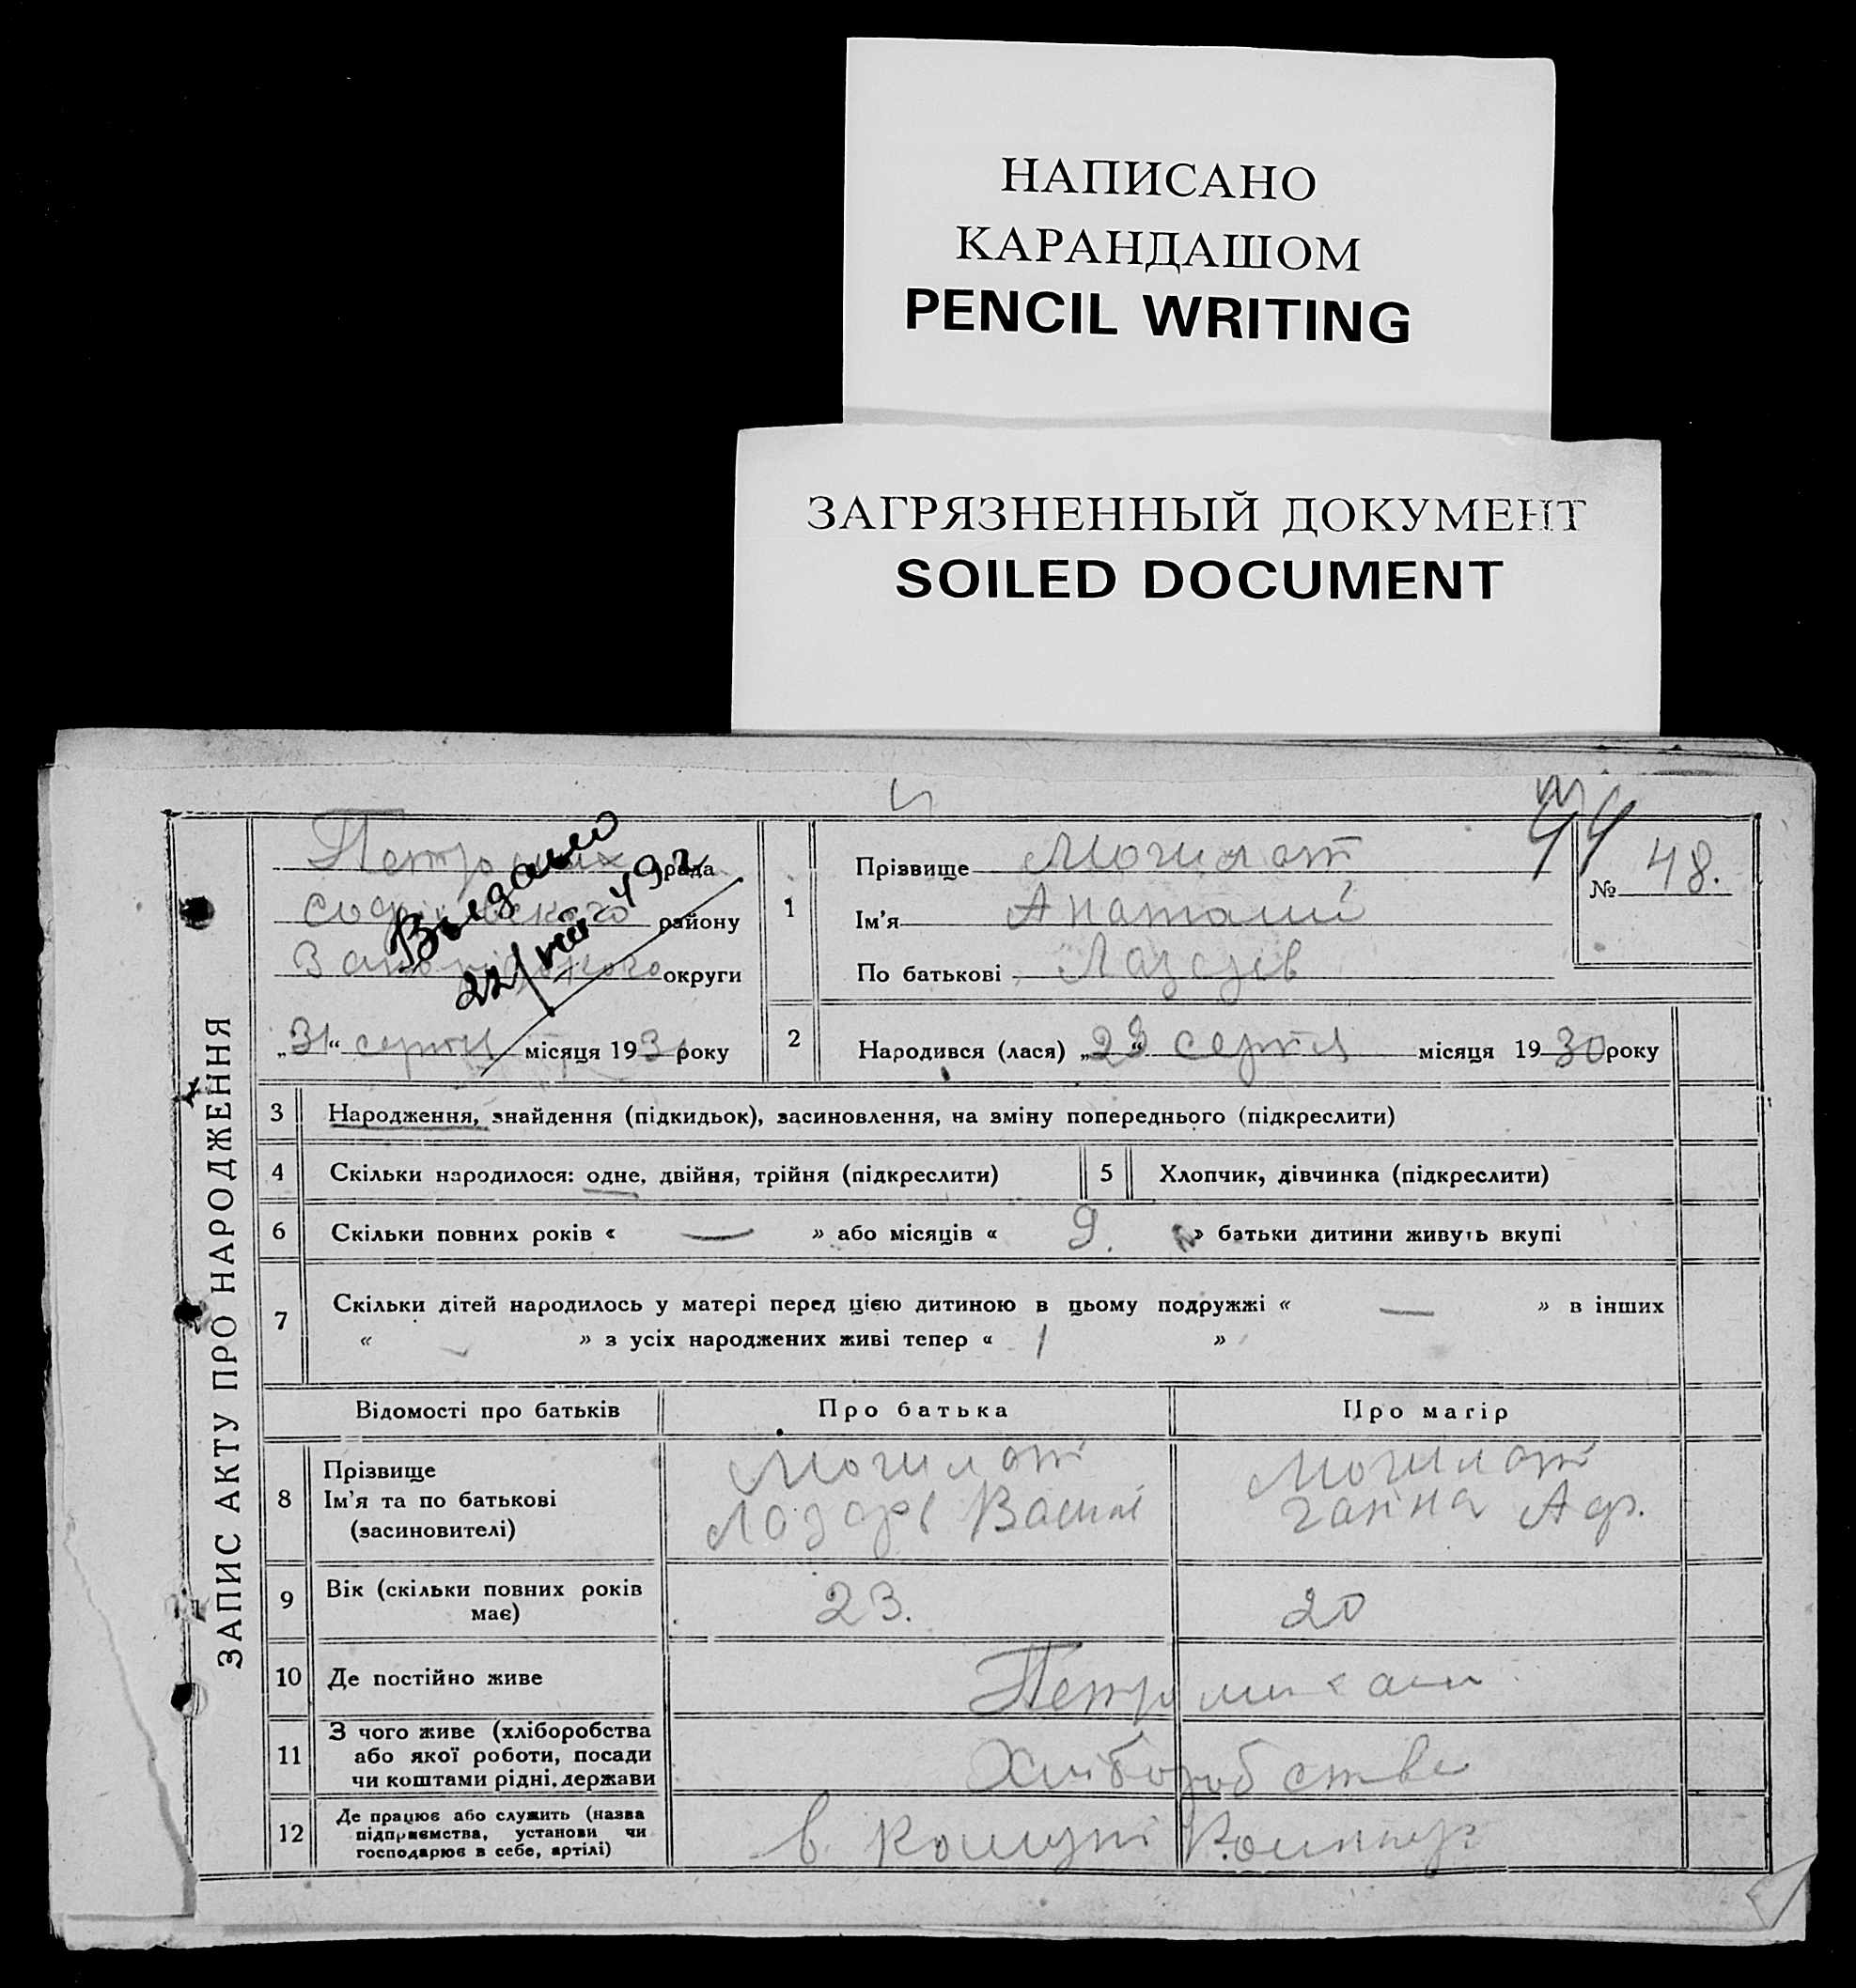 НАПИСАНО
КАРАНДАШОМ
PENCIL WRITING
ЗАГРЯЗНЕННЫЙ ДОКУМЕНТ
SOILED DOCUMENT
ЗАПИС АКТУ ПРО НАРОДЖЕННЯ
рада
району
округи
„31“ серпня місяця 193 року
Видано
44
№ 48.
1
Прізвище Могилат
Ім'я Анатолий
По батькові
2
Народився (лася) серпня місяця 1930 року
3 Народження, знайдення (підкидьок), засиновлення, на зміну попереднього (підкреслити)
4 Скільки народилося: одне, двійня, трійня (підкреслити) 5 Хлопчик, дівчинка (підкреслити)
6 Скільки повних років « — » або місяців « 9. » батьки дитини живуть вкупі
7 Скільки дітей народилось у матері перед цією дитиною в цьому подружжі « — » в інших
« » з усіх народжених живі тепер « 1 »
Відомості про батьків Про батька Про матір
8 Прізвище Могилат Могилат
Ім'я та по батькові Лазарь Васил Ганна Аф.
(засиновителі)
9 Вік (скільки повних років має) 23. 20
10 Де постійно живе
11 З чого живе (хліборобства
або якої роботи, посади
чи коштами рідні, держави
Хліборобства
12 Де працює або служить (назва
підприємства, установи чи
господарює в себе, артілі)
в комуні